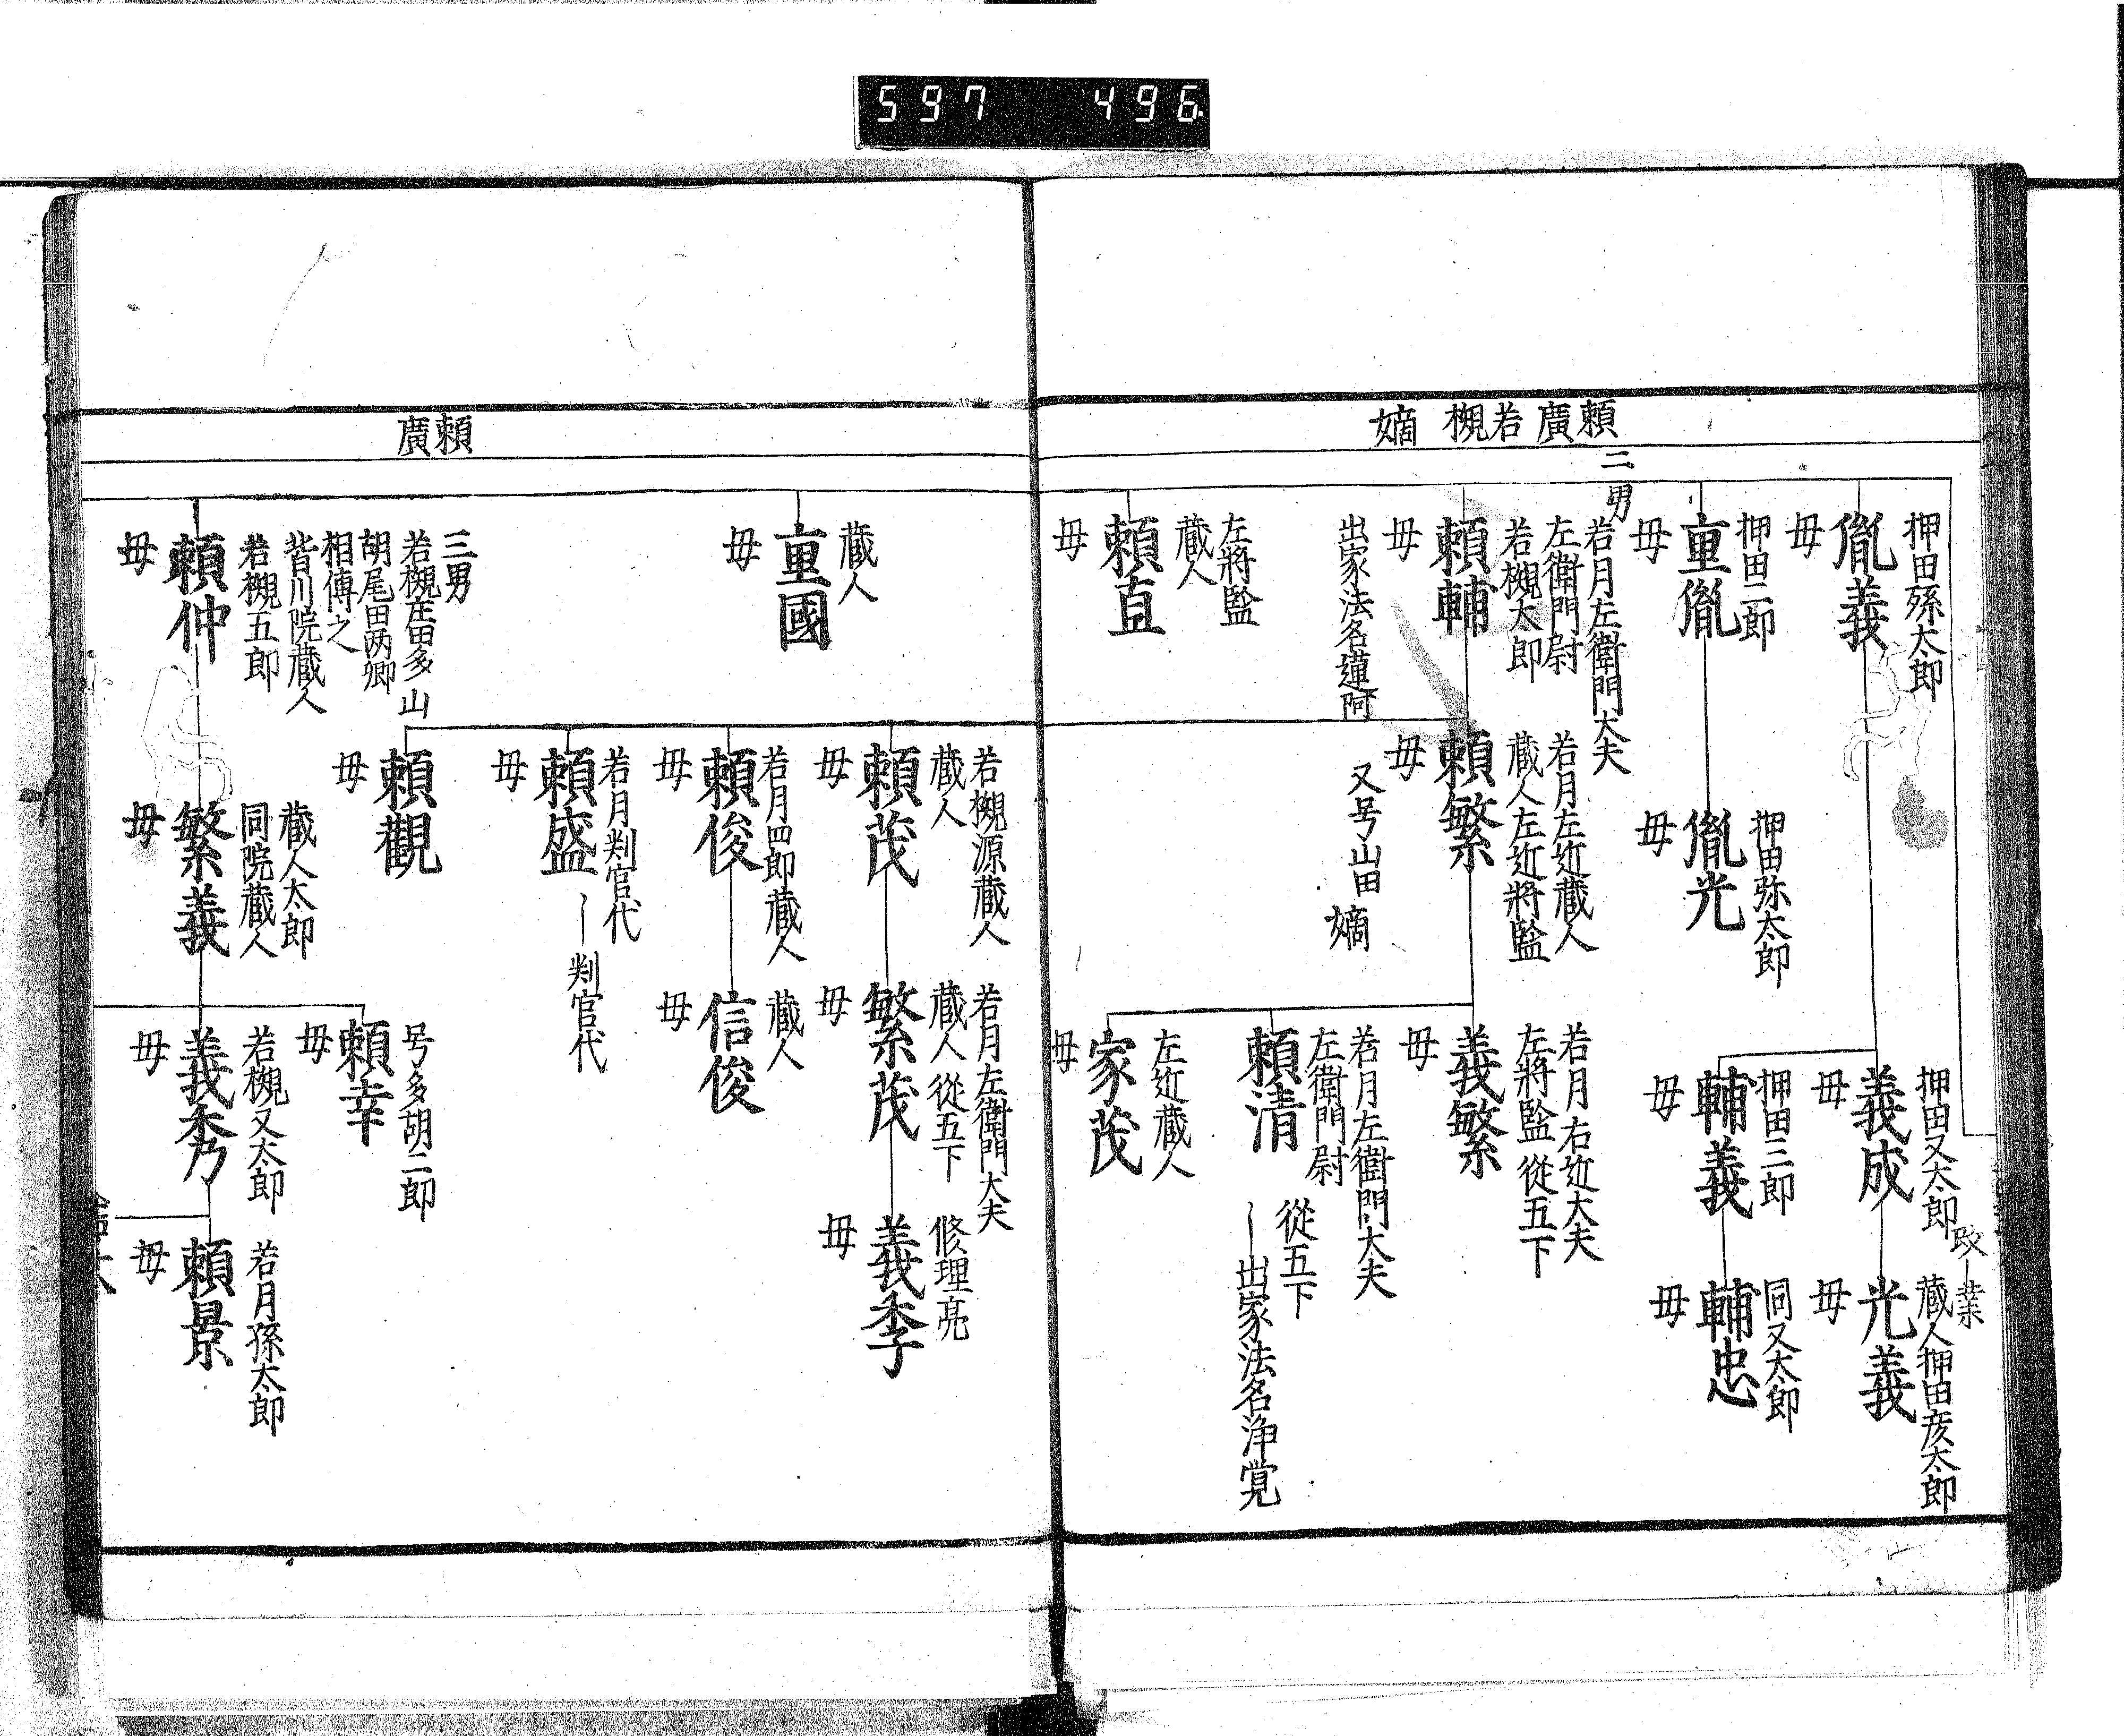 597 496
頼廣若槻 嫡
押田孫太郎
胤義
母
押田二郎
重胤
母
二男
若月左衛門大夫
左衛門尉
若槻太郎
頼輔
母
出家法名蓮阿
左將監
蔵人
頼直
母
押田弥太郎
胤光
母
若月左近蔵人
蔵人左近將監
頼繁
母
又号山田
嫡
押田又太郎
改｜業
義成
母
押田三郎
輔義
母
若月右近大夫
左將監 從五下
義繁
母
若月左衛門大夫
左衛門尉 從五下
頼清
｜出家法名浄覚
左近蔵人
家茂
母
蔵人押田彦太郎
光義
母
同又太郎
輔忠
母
頼廣
蔵人
重國
母
三男
若槻庄田多山
胡尾田两郷
相傳之
皆川院蔵人
若槻五郎
頼仲
母
若槻源蔵人
蔵人
頼茂
母
若月四郎蔵人
頼俊
母
若月判官代
頼盛
｜判官代
母
頼觀
母
蔵人太郎
同院蔵人
繁義
母
若月左衛門大夫
蔵人 從五下
繁茂
母
蔵人
信俊
母
号多胡二郎
頼幸
母
若槻又太郎
義秀
母
修理亮
義季
母
若月孫太郎
頼景
母